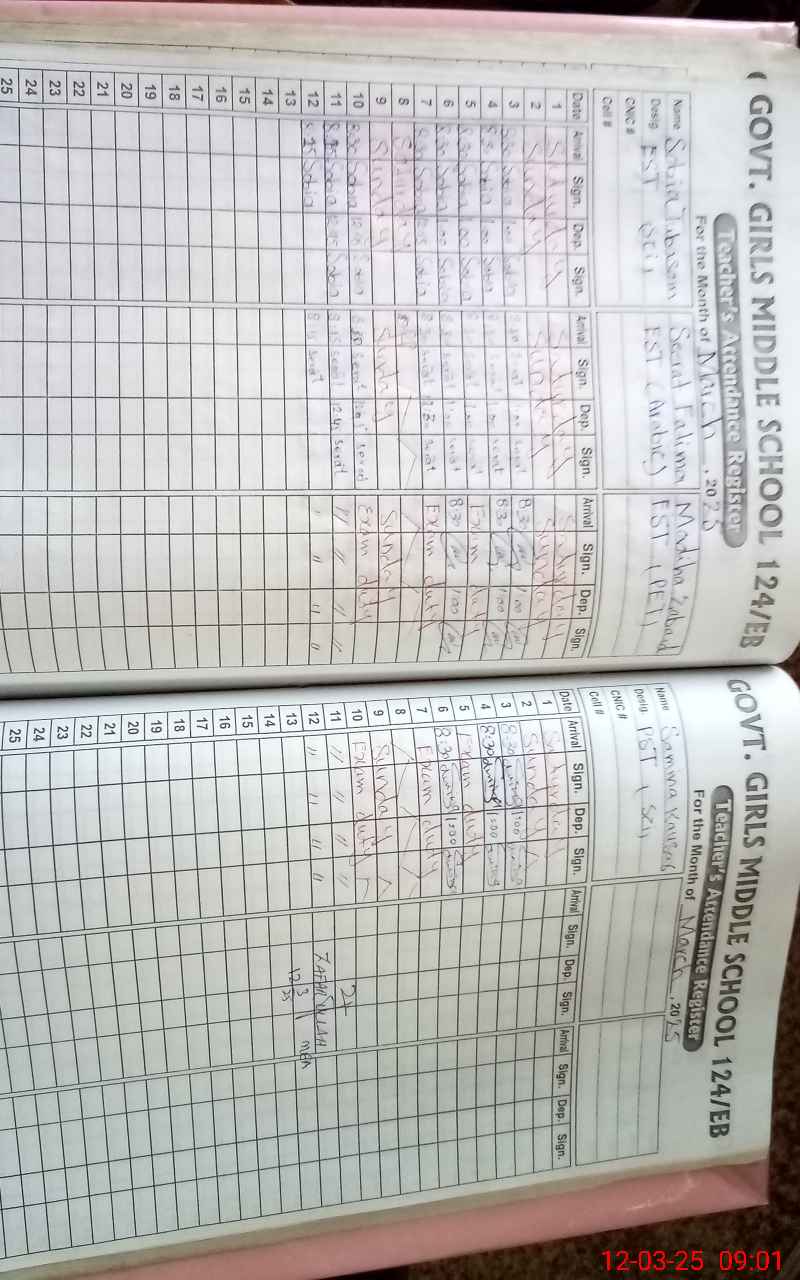 GOVT. GIRLS MIDDLE SCHOOL 124/EB
Teacher's Attendance Register
For the Month of March, 2025
Name Sobia Tabasam Seerat Fatima Madiha Zabaid
Desig EST Sci EST (Arabic) EST (PET)
CNIC #
Cell #
Date Arrival Sign. Dep. Sign. Arrival Sign. Dep. Sign. Arrival Sign. Dep. Sign.
1 Saturday Saturday Saturday
2 Sunday Sunday Sunday
3 8:30 Sobia 1:00 Sobia 8:30 Serat 1:00 Serat 8:30 1:00
4 8:30 Sobia 1:00 Sobia 8:30 Serat 1:00 Serat 8:30 1:00
5 8:30 Sobia 1:00 Sobia 8:30 Serat 1:00 Serat Exam duty
6 8:30 Sobia 1:00 Sobia 8:30 Serat 1:00 Serat 8:30 1:00
7 8:30 Sobia 12:15 Sobia 8:30 Serat 12:30 Serat Exam duty
8
9 Sunday Sunday Sunday
10 8:30 Sobia 12:45 Sobia 8:30 Serat Serat Exam duty
11 8:25 Sobia 12:45 Sobia 8:15 Serat 12:45 Serat " " " "
12 8:25 Sobia 8:15 Serat " " " "
13
14
15
16
17
18
19
20
21
22
23
24
25
GOVT. GIRLS MIDDLE SCHOOL 124/EB
Teacher's Attendance Register
For the Month of March, 2025
Name Samma Kausar
Desig PST Sci
CNIC #
Cell #
Date Arrival Sign. Dep. Sign. Arrival Sign. Dep. Sign. Arrival Sign. Dep. Sign.
1 Saturday
2 Sunday
3 8:30 1:00
4 8:30 1:00
5 Exam duty
6 8:30 1:00
7 Exam duty
8
9 Sunday
10 Exam duty
11 " " " "
12 " " " " ZAFAR ULLAH MEA
13 12/3/25
14
15
16
17
18
19
20
21
22
23
24
25
12-03-25 09:01